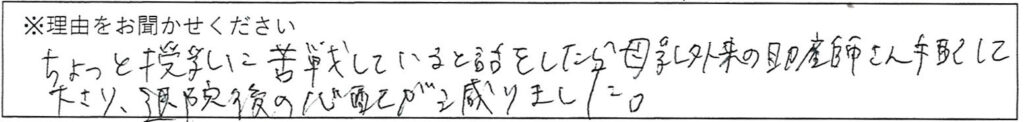 ※理由をお聞かせください
ちょっと授乳に苦戦していると話をしたら母乳外来の助産師さん手配して
下さり、退院後の心配が減りました。